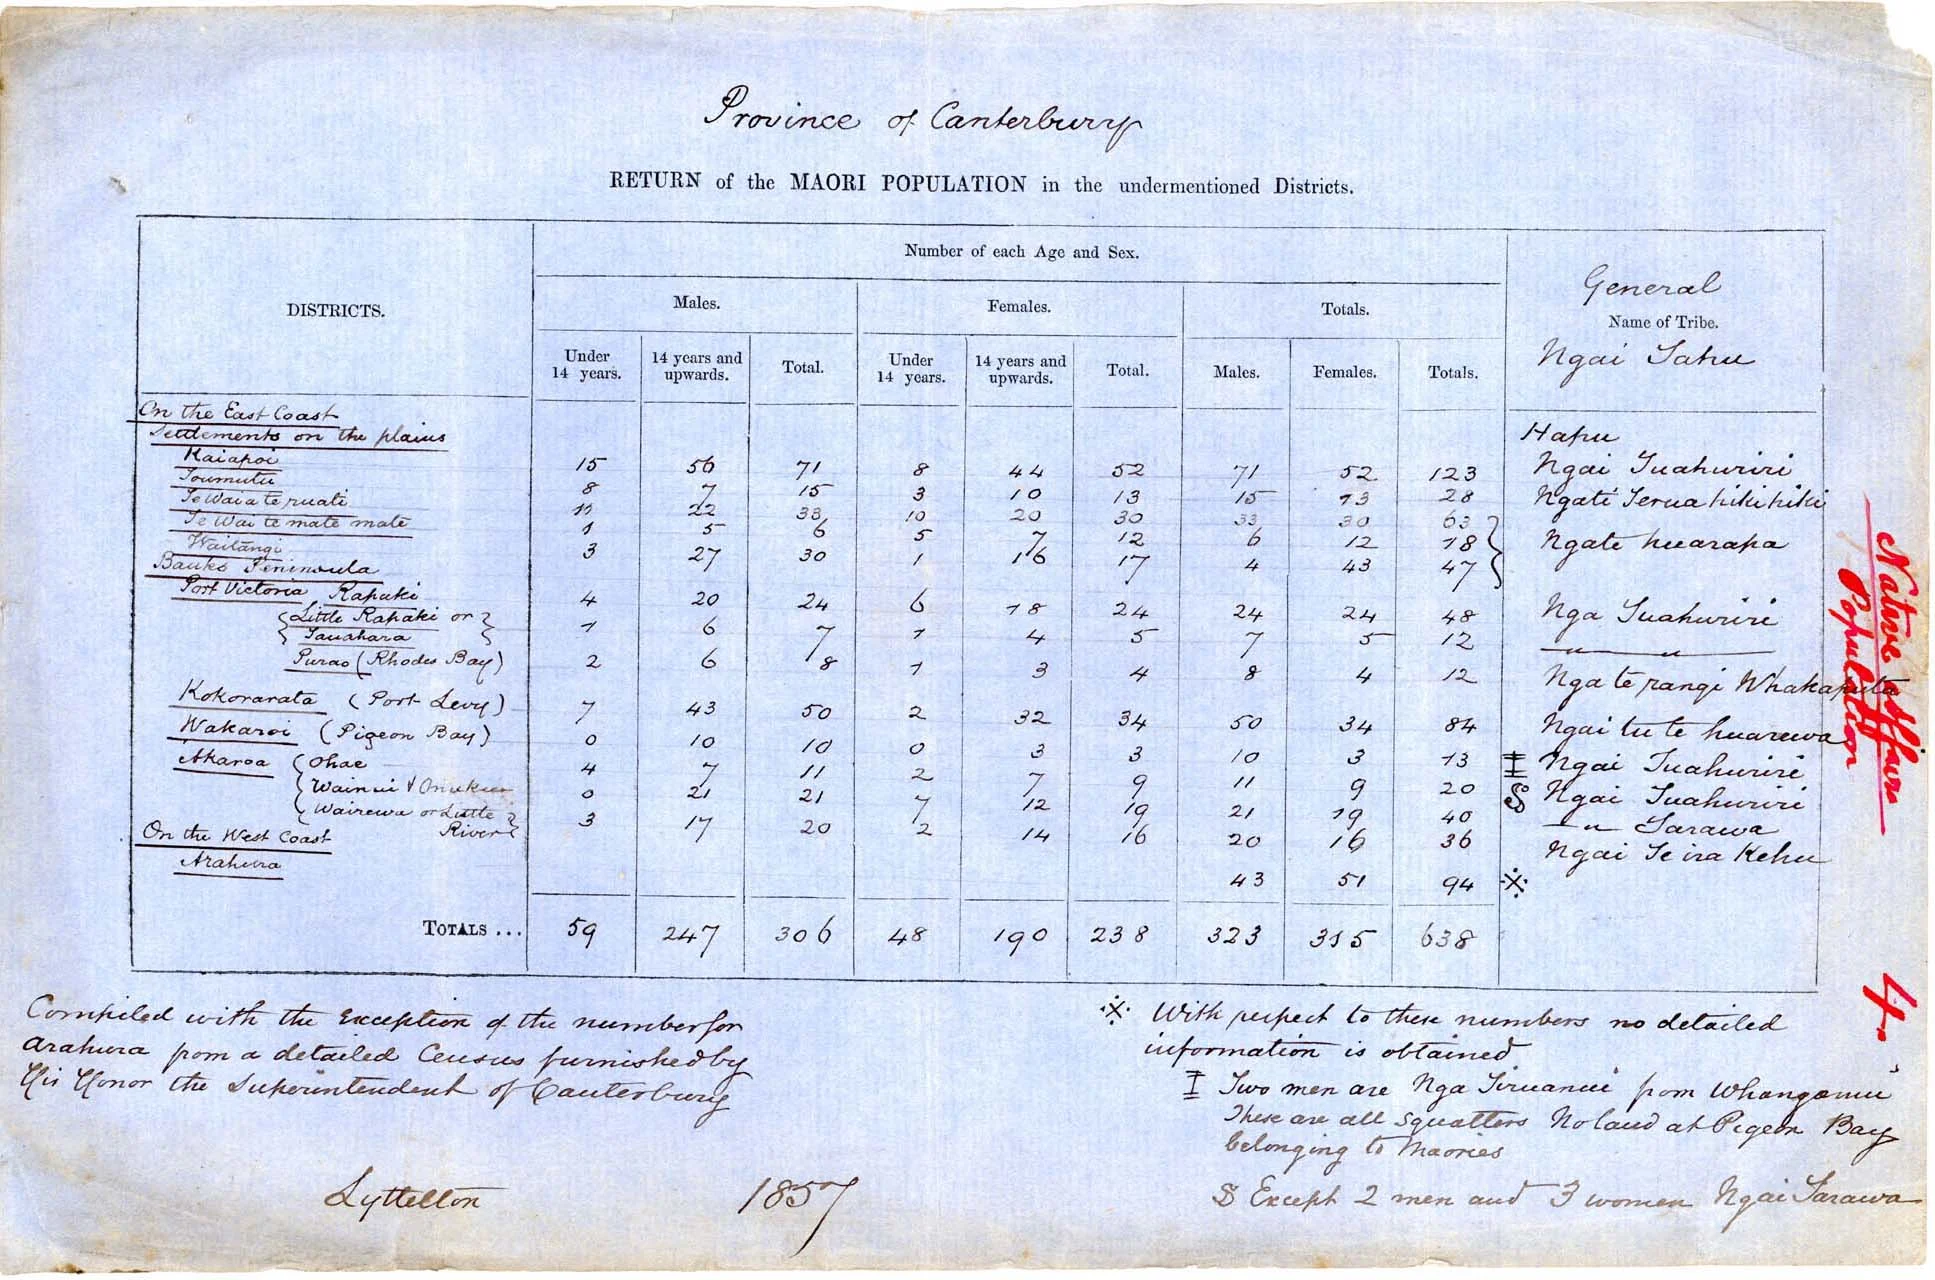 Province of Canterbury
RETURN of the MAORI POPULATION in the undermentioned Districts.
DISTRICTS.
Number of each Age and Sex.
Males. Females. Totals.
General
Name of Tribe.
Ngai Tahu
Under 14 years. 14 years and upwards. Total. Under 14 years. 14 years and upwards. Total. Males. Females. Totals.
On the East Coast
Settlements on the plains Hapu
Kaiapoi 15 56 71 8 44 52 71 52 123 Ngai Tuahuriri
Toumutu 8 7 15 3 10 13 15 13 28 Ngati Terua hikihiki
Te Wai a te ruati 11 22 33 10 20 30 33 30 63
Te Wai te mate mate 1 5 6 5 7 12 6 12 18 Ngate huarapa
Waitangi 3 27 30 1 16 17 4 43 47
Banks Peninsula
Port Victoria Rapaki 4 20 24 6 18 24 24 24 48 Nga Tuahuriri
{Little Rapaki or}
{Tauahara} 1 6 7 1 4 5 7 5 12 — " — " —
Purao (Rhodes Bay) 2 6 8 1 3 4 8 4 12 Nga te rangi Whakaputa
Kokorarata (Port Levy) 7 43 50 2 32 34 50 34 84 Ngai tu te huarewa
Wakaroi (Pigeon Bay) 0 10 10 0 3 3 10 3 13 ‡ Ngai Tuahuriri
Akaroa (Ohae 4 7 11 2 7 9 11 9 20 § Ngai Tuahuriri
(Wainui & Onuku 0 21 21 7 12 19 21 19 40 — " — Tarawa
(Wairewa or Little River} 3 17 20 2 14 16 20 16 36 Ngai Te ira Kehu
On the West Coast
Arahura 43 51 94 ※
TOTALS ... 59 247 306 48 190 238 323 315 638
Compiled with the exception of the number for
Arahura from a detailed Census furnished by
His Honor the Superintendent of Canterbury
Lyttelton 1857
※ With respect to these numbers no detailed
information is obtained
‡ Two men are Nga Tiruanui from Whanganui
These are all squatters No land at Pigeon Bay
belonging to Maories
§ Except 2 men and 3 women Ngai Tarawa
Native Affairs
Population
4.